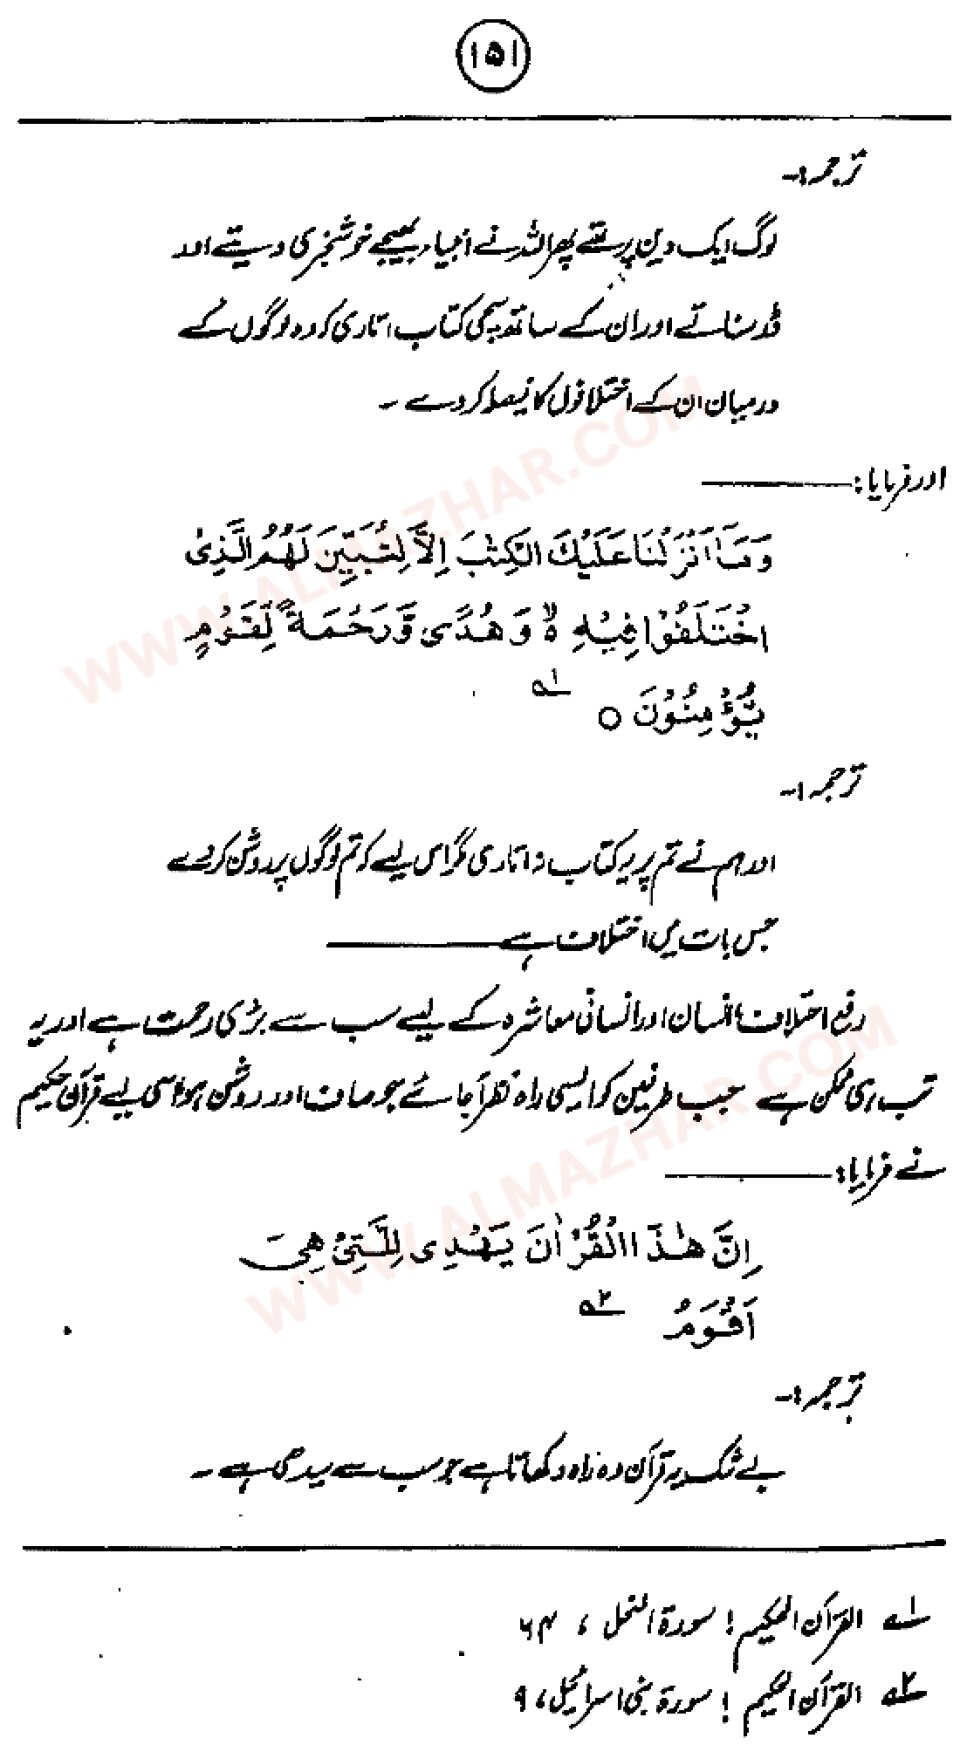 ۱۵۱
ترجمہ:-
لوگ ایک دین پر تھے پھر اللہ نے انبیاء بھیجے خوشخبری دیتے اور
ڈر سناتے اور ان کے ساتھ سچی کتاب اتاری کہ وہ لوگوں کے
درمیان ان کے اختلافوں کا فیصلہ کر دے ۔
اور فرمایا:
وَمَآ اَنْزَلْنَا عَلَيْكَ الْكِتٰبَ اِلَّا لِتُبَيِّنَ لَهُمُ الَّذِى
اخْتَلَفُوْا فِيْهِ ۙ وَ هُدًى وَّ رَحْمَةً لِّقَوْمٍ
يُّؤْمِنُوْنَ ○ ۱ھ
ترجمہ:-
اور ہم نے تم پر یہ کتاب نہ اتاری مگر اس لیے کہ تم لوگوں پر روشن کر دے
جس بات میں اختلاف ہے
رفع اختلاف انسان اور انسانی معاشرہ کے لیے سب سے بڑی رحمت ہے اور یہ
تب ہی ممکن ہے جب طرفین کو ایسی راہ نظر آجائے جو صاف اور روشن ہو، اسی لیے قرآن حکیم
نے فرمایا:
اِنَّ هٰذَا الْقُرْاٰنَ يَهْدِى لِلَّتِىْ هِىَ
اَقْوَمُ ۲ھ
ترجمہ:-
بے شک یہ قرآن وہ راہ دکھاتا ہے جو سب سے سیدھی ہے ۔
۱ھ القرآن الحکیم ! سورۃ النحل ، ۶۴
۲ھ القرآن الحکیم ! سورۃ بنی اسرائیل ، ۹
WWW.ALMAZHAR.COM
WWW.ALMAZHAR.COM